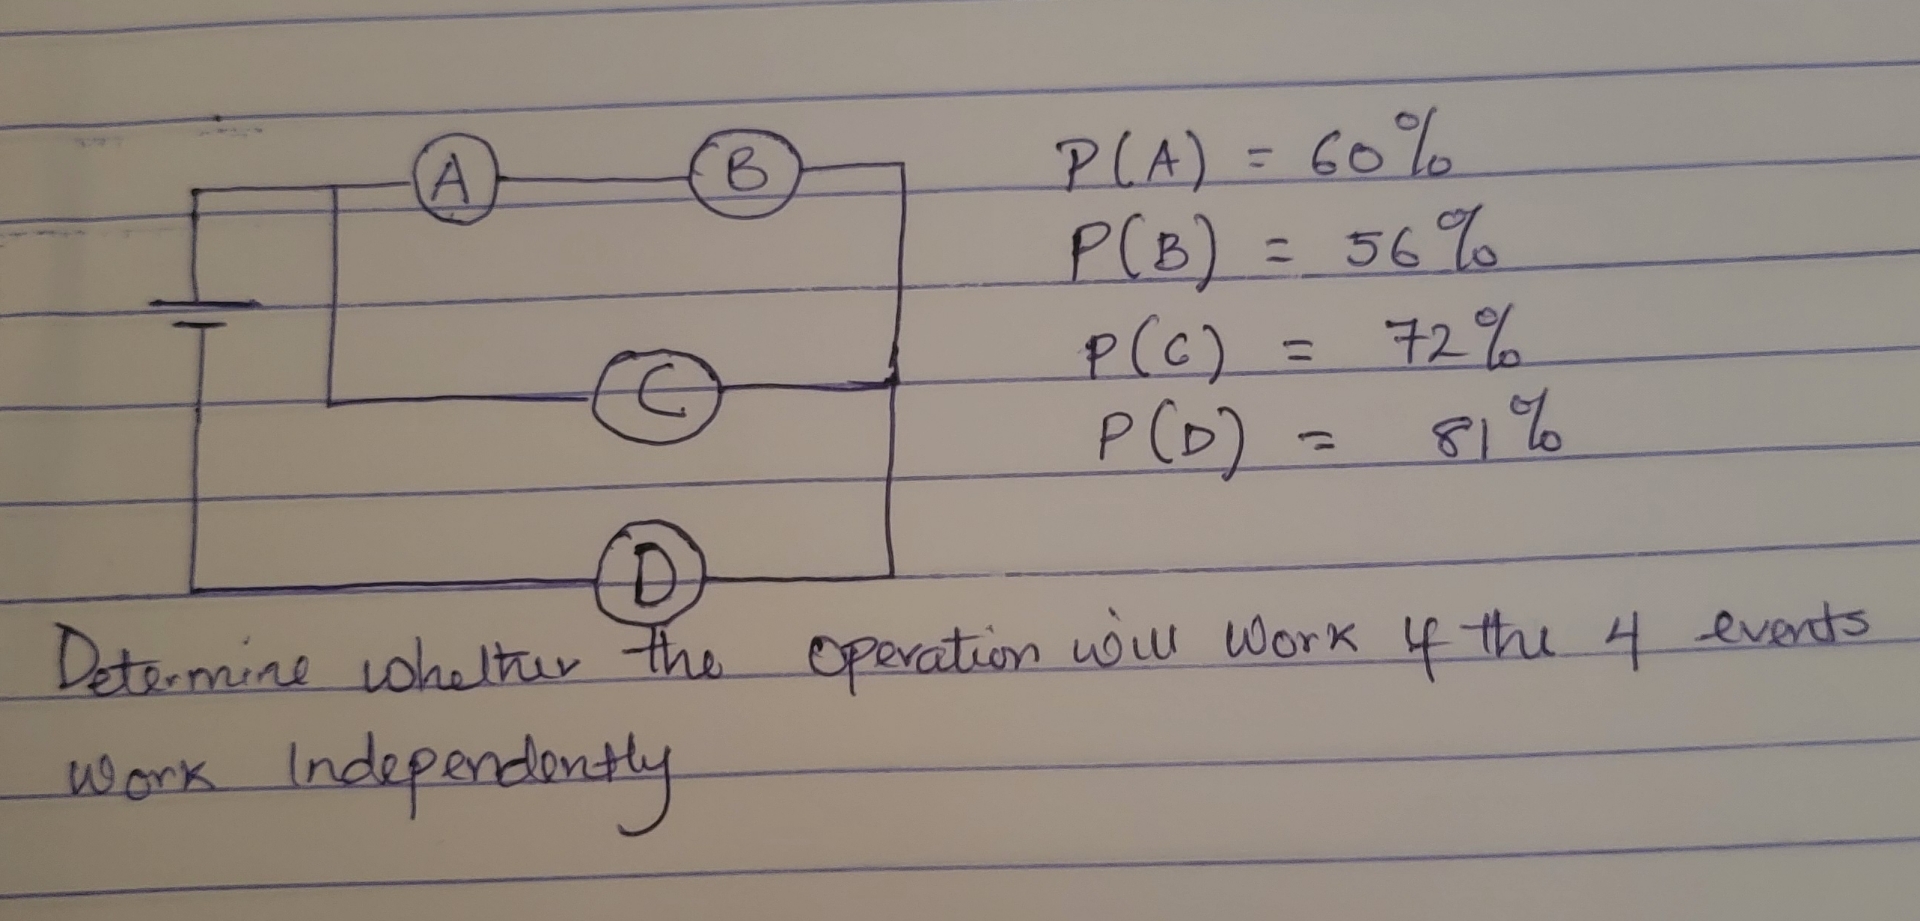 A B P(A) = 60%
P(B) = 56%
C P(C) = 72%
P(D) = 81%
D
Determine whether the operation will work if the 4 events
work Independently